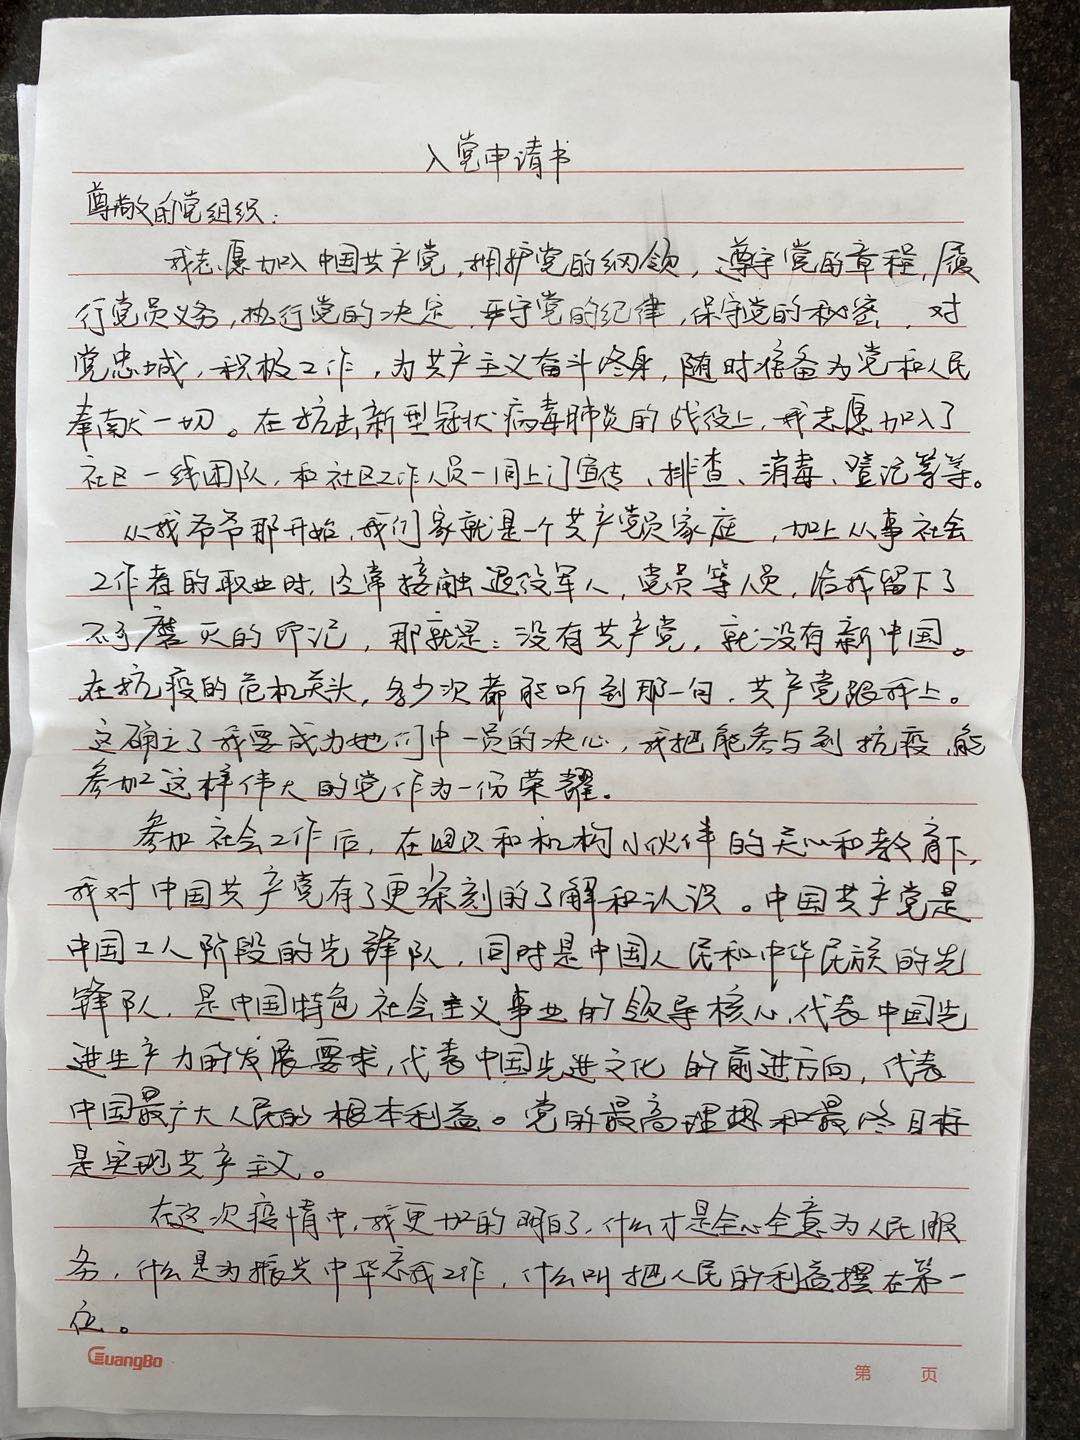 入党申请书
尊敬的党组织：
我志愿加入中国共产党，拥护党的纲领，遵守党的章程，履
行党员义务，执行党的决定，严守党的纪律，保守党的秘密，对
党忠城，积极工作，为共产主义奋斗终身，随时准备为党和人民
奉献一切。在抗击新型冠状病毒肺炎的战役上，我志愿加入了
社区一线团队，和社区工作人员一同上门宣传、排查、消毒、登记等等。
从我爷爷那开始，我们家就是一个共产党员家庭，加上从事社会
工作者的职业时，经常接触退役军人，党员等人员，给我留下了
不可磨灭的印记，那就是：没有共产党，就没有新中国。
在抗疫的危机关头，多少次都能听到那一句，共产党跟我上。
这确立了我要成为她们中一员的决心，我把能参与到抗疫，能
参加这样伟大的党作为一份荣耀。
参加社会工作后，在和机构小伙伴的关心和教育下，
我对中国共产党有了更深刻的了解和认识。中国共产党是
中国工人阶段的先锋队，同时是中国人民和中华民族的先
锋队，是中国特色社会主义事业的领导核心，代表中国先
进生产力的发展要求，代表中国先进文化的前进方向，代表
中国最广大人民的根本利益。党的最高理想和最终目标
是实现共产主义。
在这次疫情中，我更加的明白了，什么才是全心全意为人民服
务，什么是为振兴中华忘我工作，什么叫把人民的利益摆在第一
位。
GuangBo
第 页